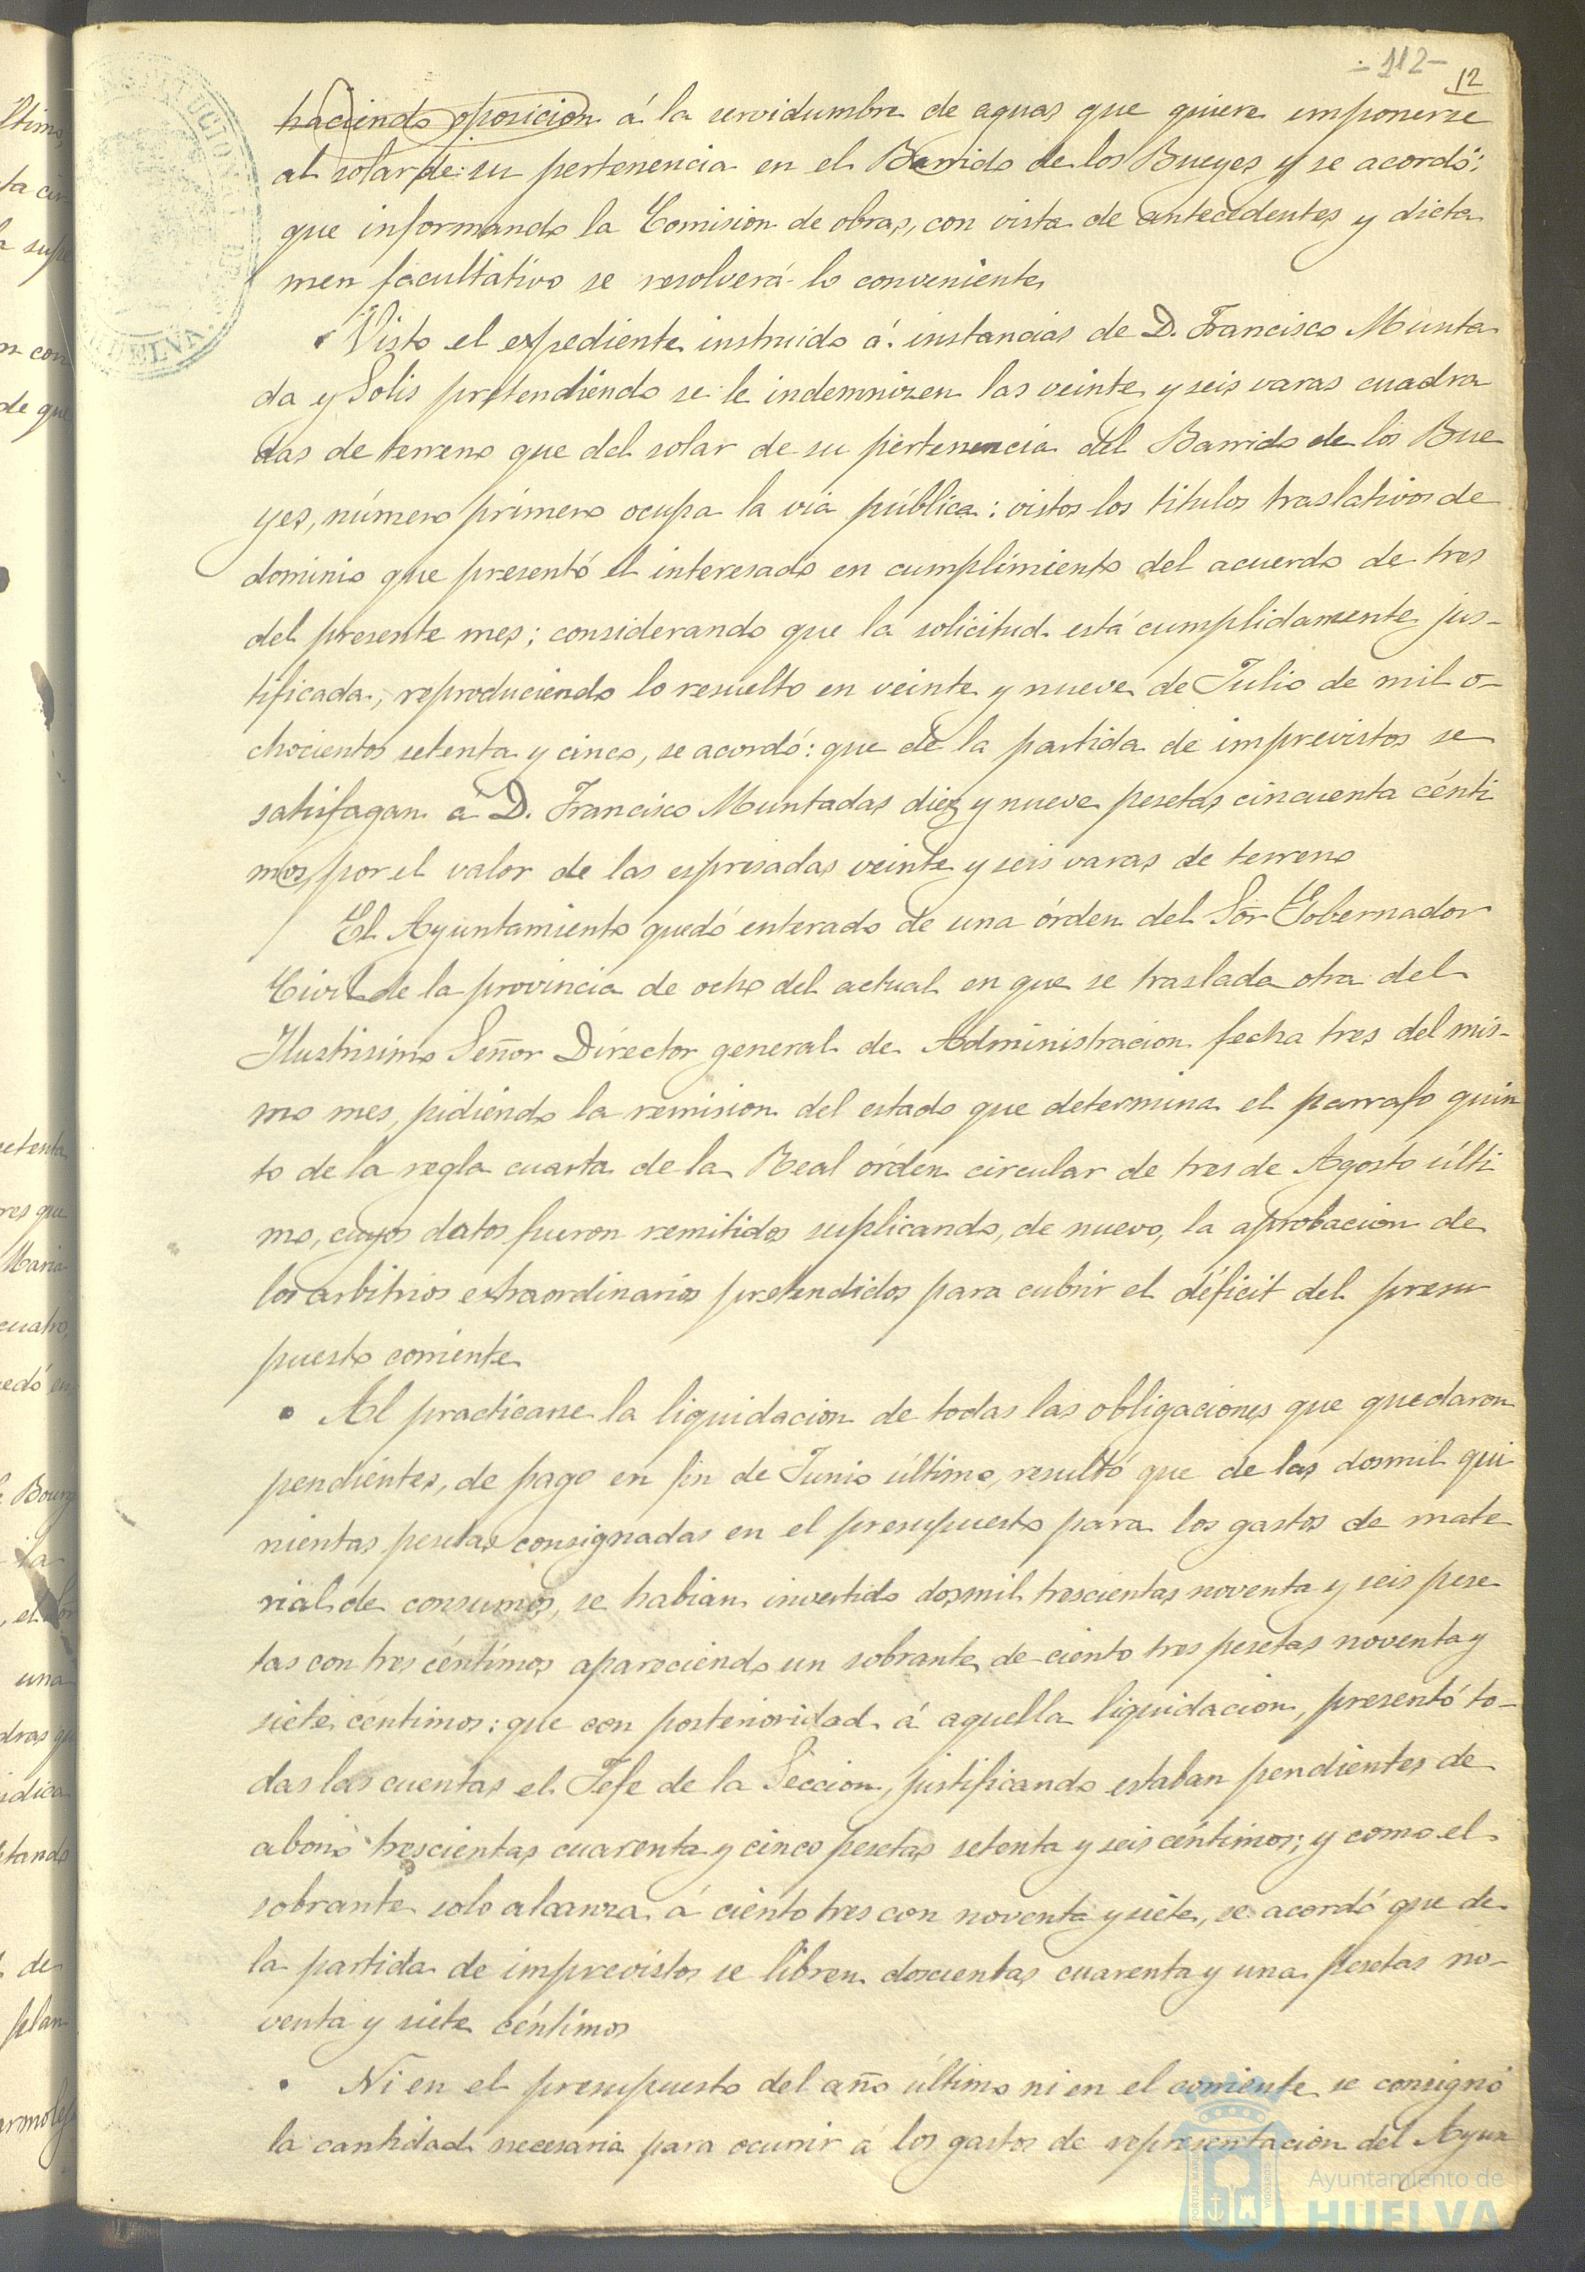 -112-
12
haciendo oposicion á la servidumbre de aguas que quiere imponerse
al solar de su pertenencia en el Barrido de los Bueyes y se acordó:
que informando la Comision de obras, con vista de antecedentes y dicta
men facultativo se resolverá lo conveniente
Visto el expediente instruido á instancias de D. Francisco Munta
da y Solis pretendiendo se le indemnizen las veinte y seis varas cuadra
das de terreno que del solar de su pertenencia del Barrido de los Bue
yes, número primero ocupa la via pública: vistos los titulos traslativos de
dominio que presentó el interesado en cumplimiento del acuerdo de tres
del presente mes; considerando que la solicitud está cumplidamente jus-
tificada, reproduciendo lo resuelto en veinte y nueve de Julio de mil o-
chocientos setenta y cinco, se acordó: que de la partida de imprevistos se
satisfagan á D. Francisco Muntadas diez y nueve pesetas cincuenta cénti
mos por el valor de las espresadas veinte y seis varas de terreno
El Ayuntamiento quedó enterado de una órden del Sor Gobernador
Civil de la provincia de ocho del actual en que se traslada otra del
Ilustrisimo Señor Director general de Administracion fecha tres del mis-
mo mes, pidiendo la remision del estado que determina el parrafo quin
to de la regla cuarta de la Real órden circular de tres de Agosto últi
mo, cuyos datos fueron remitidos suplicando, de nuevo, la aprobacion de
los arbitrios extraordinarios pretendidos para cubrir el déficit del presu
puesto corriente
Al practicarse la liquidacion de todas las obligaciones que quedaron
pendientes, de pago en fin de Junio último, resultó que de las dosmil qui
nientas pesetas consignadas en el presupuesto para los gastos de mate
rial de consumos, se habian invertido dosmil trescientas noventa y seis pese
tas con tres céntimos apareciendo un sobrante de ciento tres pesetas noventa y
siete céntimos: que con posterioridad á aquella liquidacion, presentó to-
das las cuentas el Jefe de la Seccion, justificando estaban pendientes de
abono trescientas cuarenta y cinco pesetas setenta y seis céntimos; y como el
sobrante solo alcanza á ciento tres con noventa y siete, se acordó que de
la partida de imprevistos se libren doscientas cuarenta y una pesetas no-
venta y siete céntimos
Ni en el presupuesto del año último ni en el corriente se consignó
la cantidad necesaria para ocurrir á los gastos de representacion del Ayun
Ayuntamiento de
HUELVA